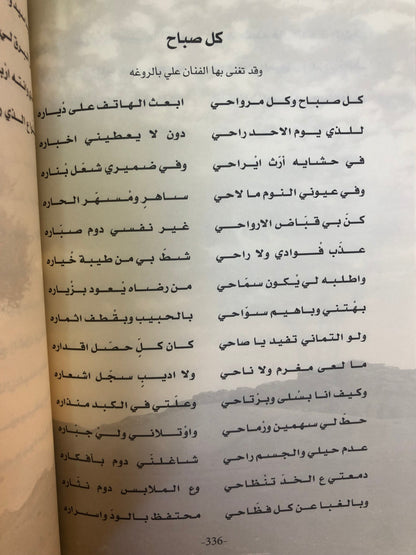 كل صباح
وقد تغنى بها الفنان علي بالروغه
كل صباح وكل مرواحي ابعث الهاتف على دياره
للذي يوم الاحد راحي دون لا يعطيني اخباره
في حشايه أرث ايراحي وفي ضميري شعل بناره
وفي عيوني النوم ما لاحي ساهر ومسهر الحاره
كن بي قباض الارواحي غير نفسي دوم صباره
عذب فوادي ولا راحي شط بي من طيبة خياره
واطلبه لي يكون سماحي من رضاه يعود بزياره
بهتني وباهيم سواحي بالحبيب وبقطف اثماره
ولو التماني تفيد يا صاحي كان كل حصل اقداره
ما لعى مغرم ولا ناحي ولا اديب سجل اشعاره
وكيف انا بسلى وبرتاحي وعلتي في الكبد منذاره
حط لي سهمين ورماحي واوتلاني ولي جباره
عدم حيلي والجسم راحي شاغلني دوم بافكاره
دمعتي ع الخد تنظاحي وع الملابس دوم نثاره
وبالغبا عن كل فظاحي محتفظ بالود واسراره
-336-